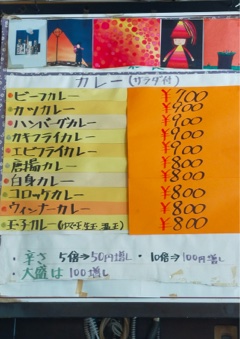 カレー (サラダ付)
・ビーフカレー ¥700
・カツカレー ¥900
・ハンバーグカレー ¥900
・カキフライカレー ¥900
・エビフライカレー ¥900
・唐揚カレー ¥800
・白身カレー ¥800
・コロッケカレー ¥800
・ウィンナーカレー ¥800
・玉子カレー ¥800
・辛さ 5倍⇒50円増し ・10倍⇒100円増し
・大盛は 100増し